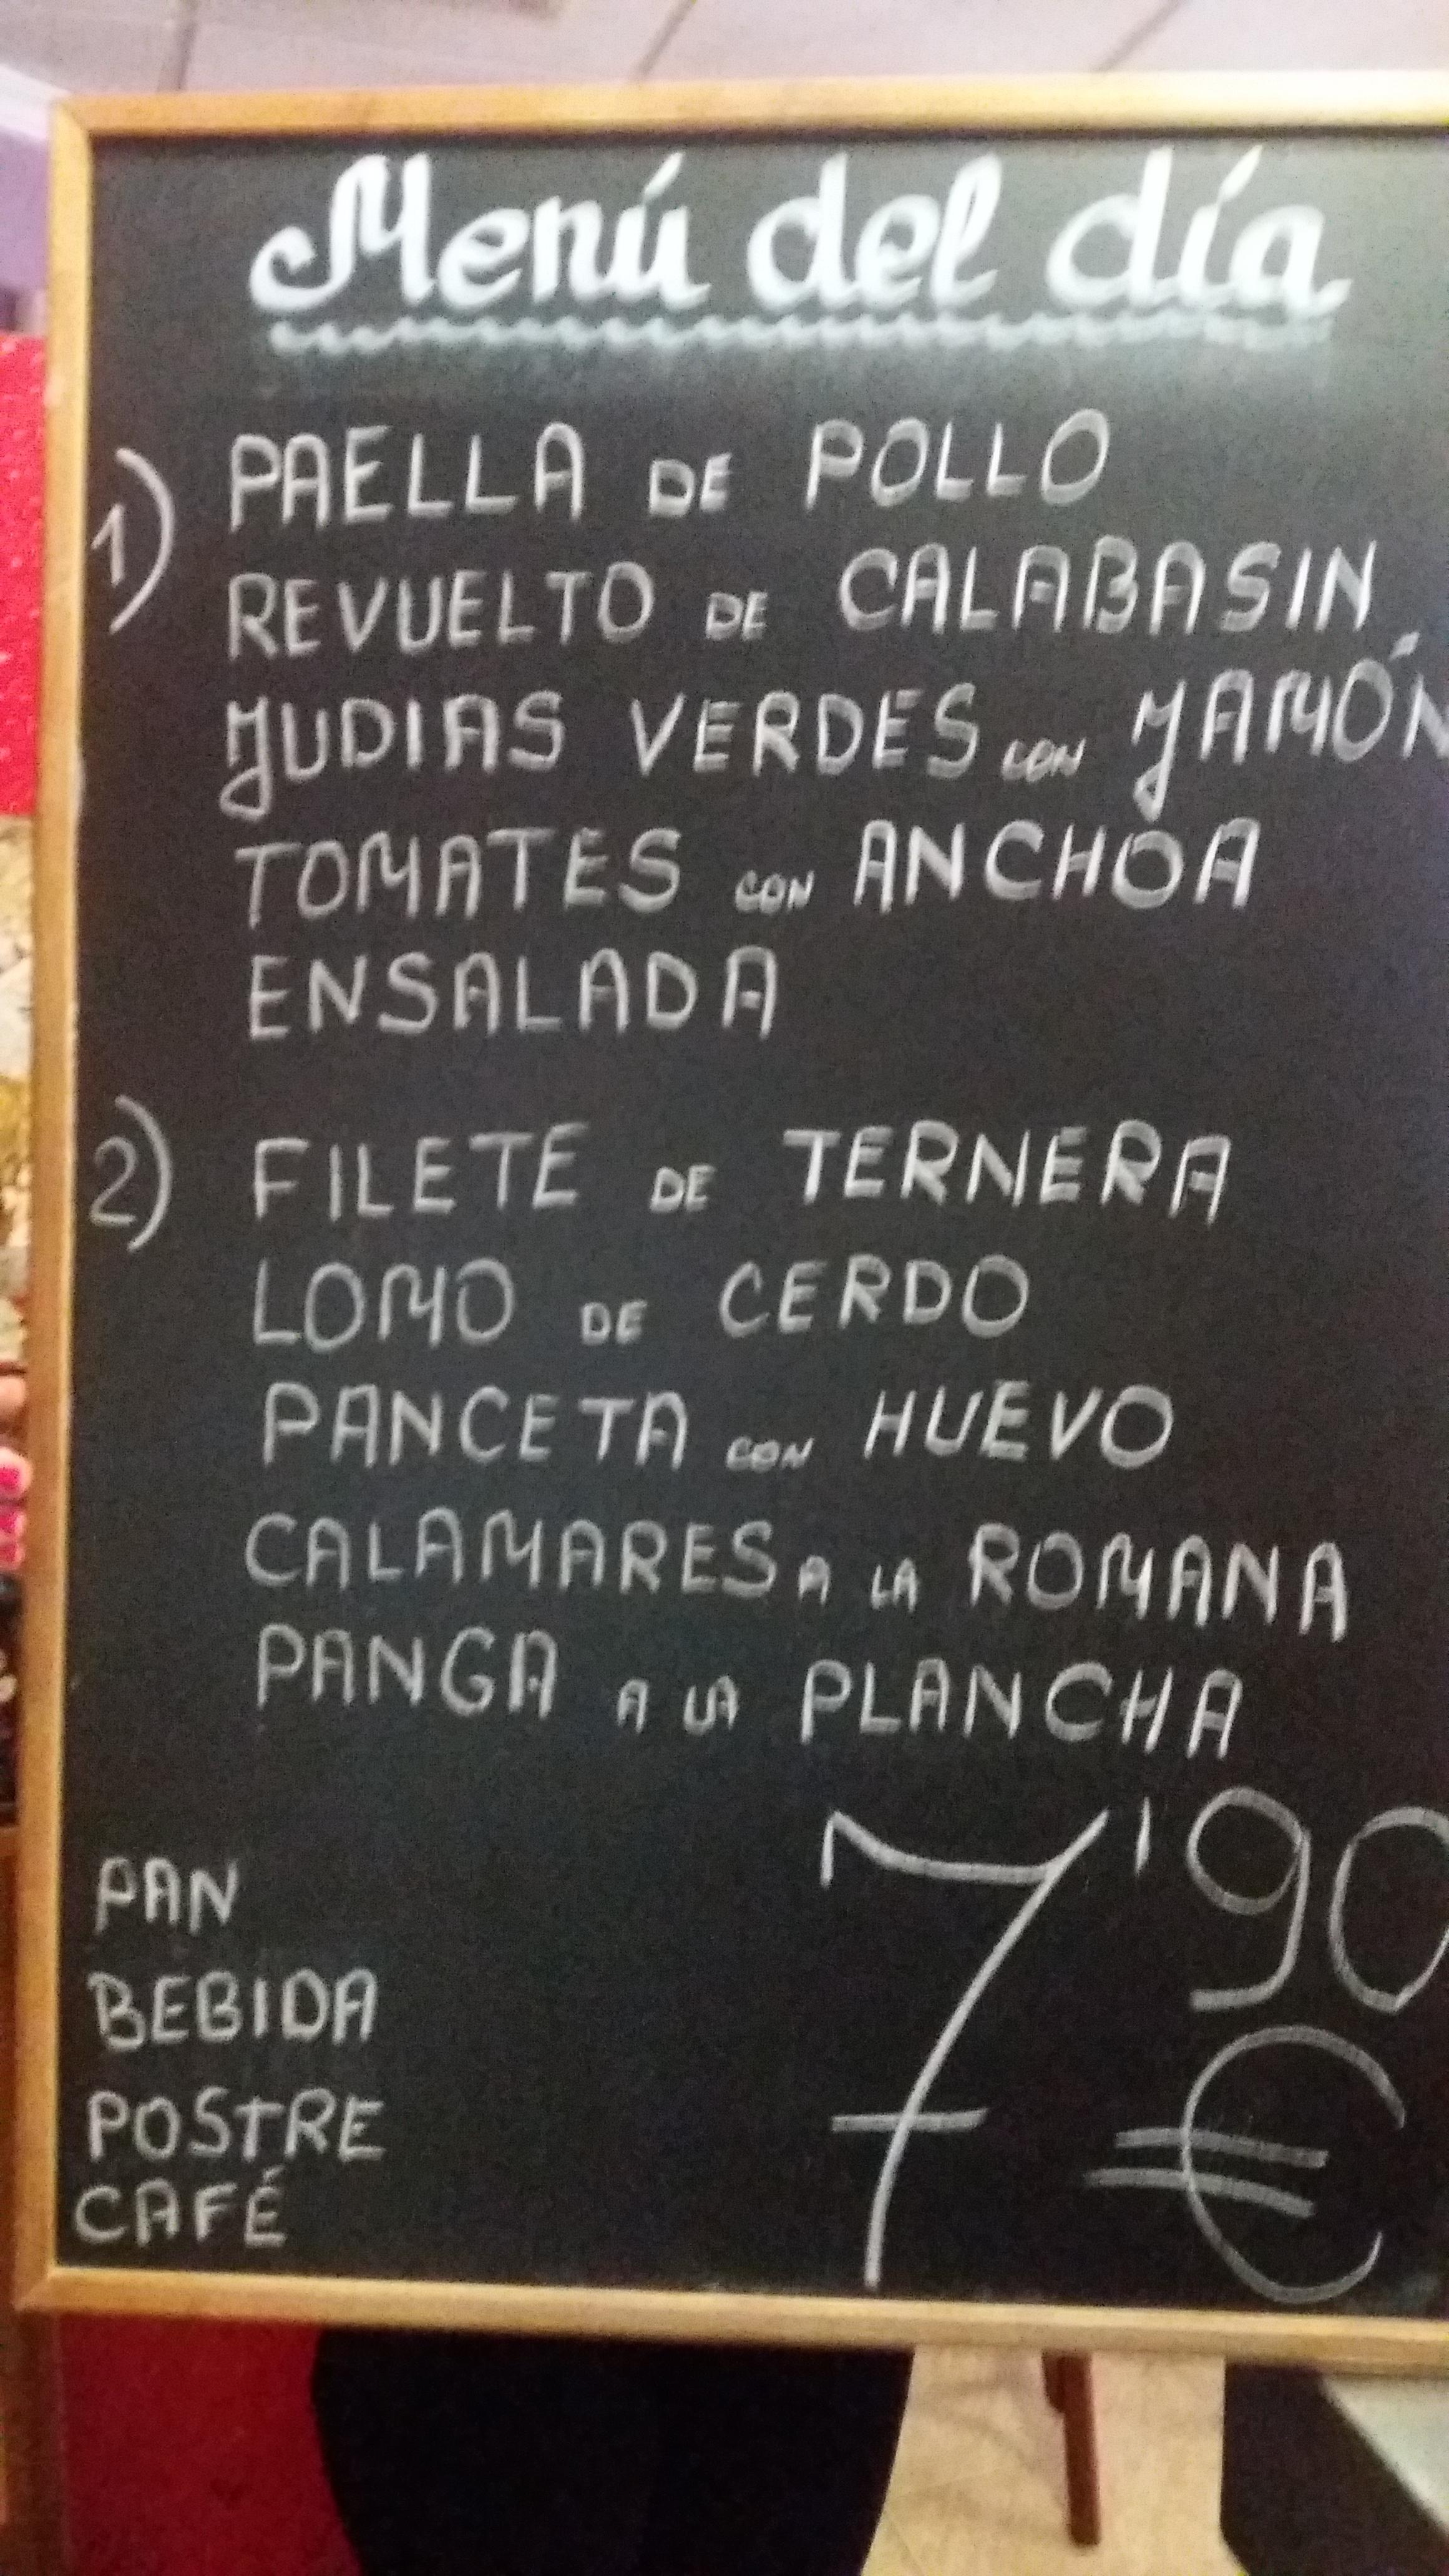 Menú del día
1) PAELLA DE POLLO
REVUELTO DE CALABASIN
JUDIAS VERDES CON JAMÓN
TOMATES CON ANCHOA
ENSALADA
2) FILETE DE TERNERA
LOMO DE CERDO
PANCETA CON HUEVO
CALAMARES A LA ROMANA
PANGA A LA PLANCHA
PAN
BEBIDA
POSTRE
CAFÉ
7'90
€